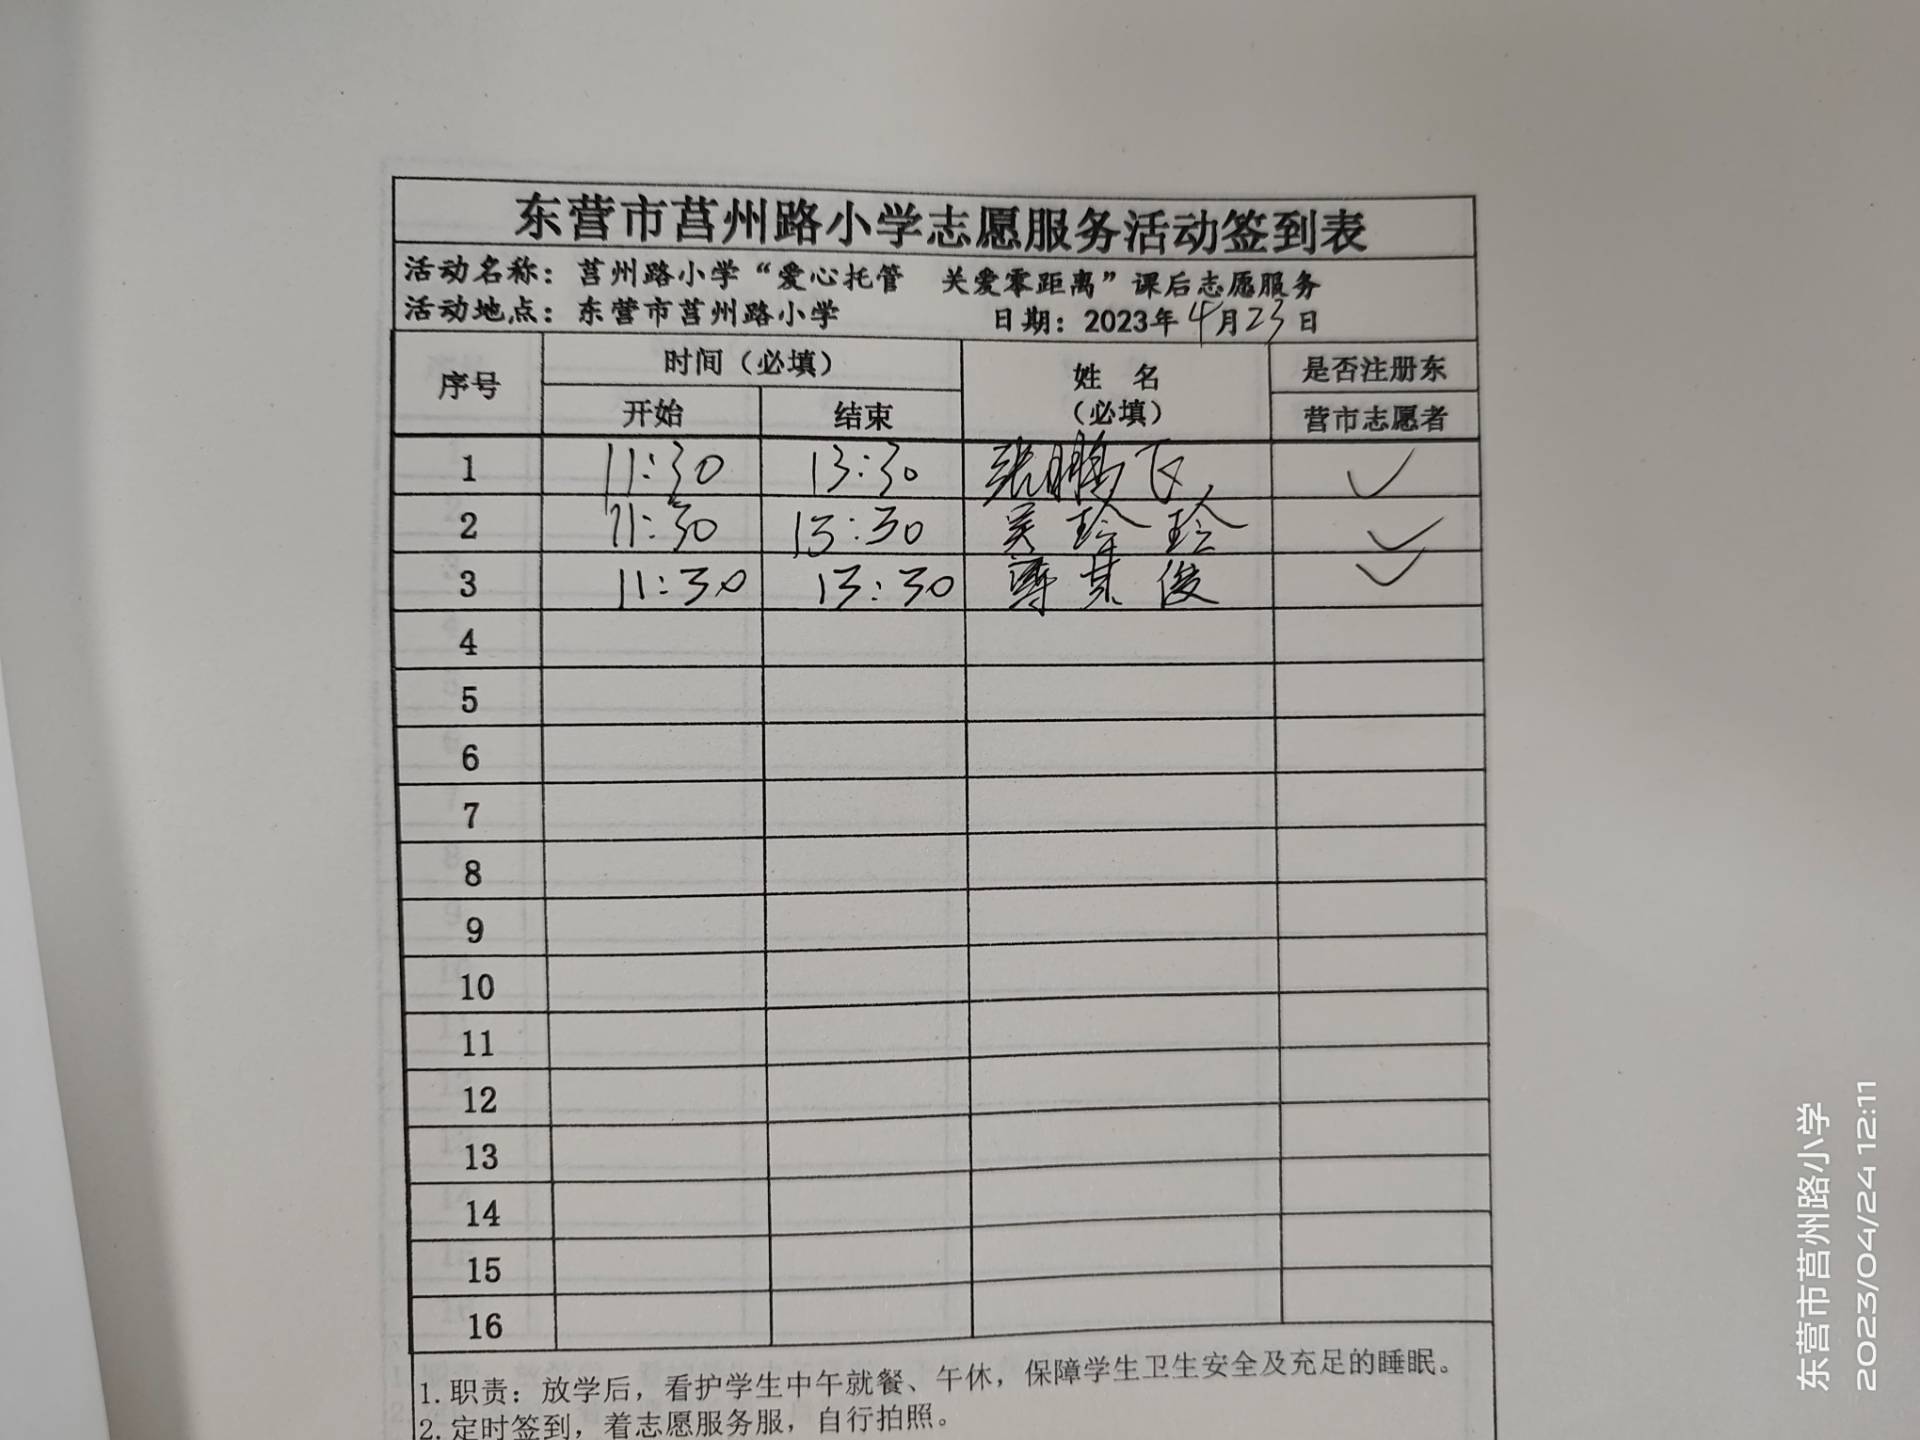 东营市莒州路小学志愿服务活动签到表
活动名称：莒州路小学“爱心托管 关爱零距离”课后志愿服务
活动地点：东营市莒州路小学 日期：2023年4月23日
序号 时间（必填） 姓 名 （必填） 是否注册东
开始 结束 营市志愿者
1 11:30 13:30 张鹏飞 ✓
2 11:30 13:30 吴玲玲 ✓
3 11:30 13:30 其俊 ✓
4
5
6
7
8
9
10
11
12
13
14
15
16
1.职责：放学后，看护学生中午就餐、午休，保障学生卫生安全及充足的睡眠。
2.定时签到，着志愿服务服，自行拍照。
东营市莒州路小学
2023/04/24 12:11